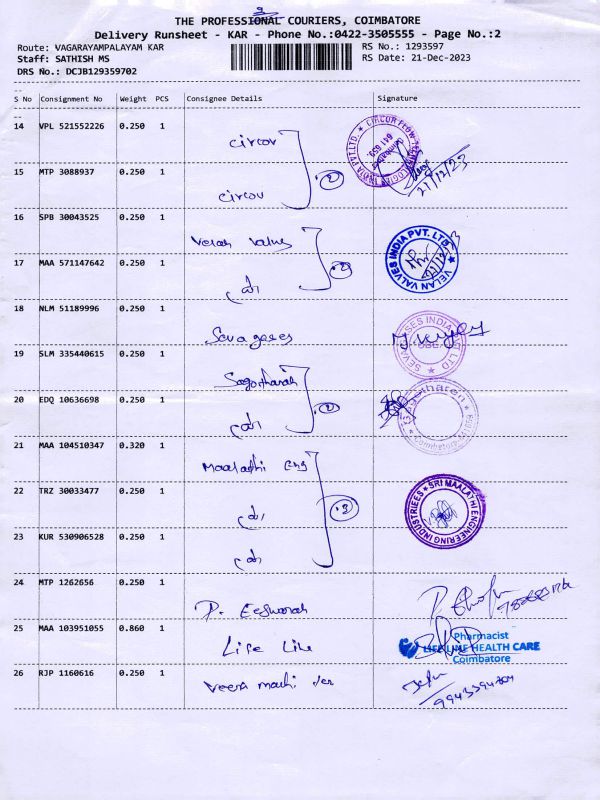 THE PROFESSIONAL COURIERS, COIMBATORE
Delivery Runsheet - KAR - Phone No.:0422-3505555 - Page No.:2
Route: VAGARAYAMPALAYAM KAR
RS No.: 1293597
Staff: SATHISH MS
RS Date: 21-Dec-2023
DRS No.: DCJB129359702
S No Consignment No Weight PCS Consignee Details Signature
14 VPL 521552226 0.250 1 circor
21/12/23
15 MTP 3088937 0.250 1 circor
16 SPB 30043525 0.250 1
VELAN VALVES INDIA PVT. LTD.
17 MAA 571147642 0.250 1
18 NLM 51189996 0.250 1 Seva gases
SEVA GASES INDIA PVT LTD
19 SLM 335440615 0.250 1
20 EDQ 10636698 0.250 1
Coimbatore
21 MAA 104510347 0.320 1 Maalathi Eng
SRI MAALATHI ENGINEERING INDUSTRIEES
22 TRZ 30033477 0.250 1
23 KUR 530906528 0.250 1
24 MTP 1262656 0.250 1 P. Eeswaran
25 MAA 103951055 0.860 1 Life Line
Pharmacist
LIFE LINE HEALTH CARE
Coimbatore
26 RJP 1160616 0.250 1